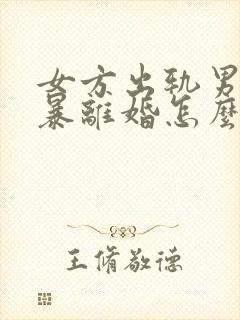 女方出轨男
暴離婚怎麼
王脩敬德